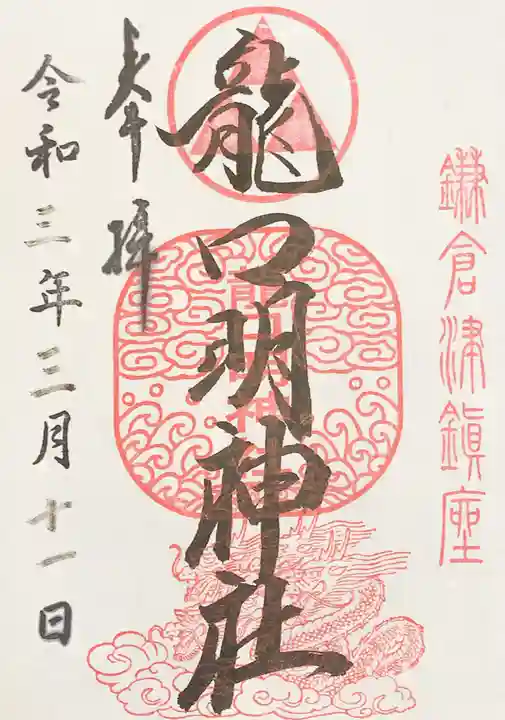 鎌倉津鎮座
龍口明神社
奉拝
令和三年三月十一日